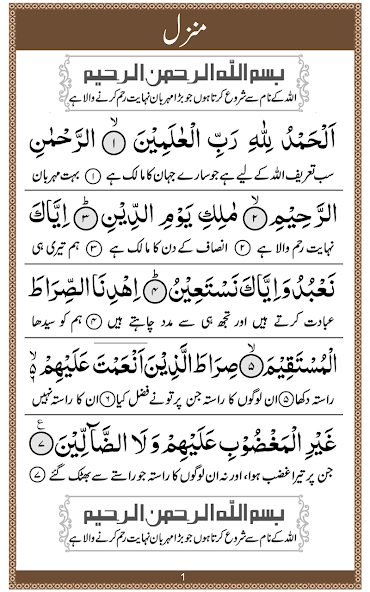 منزل
بسم الله الرحمن الرحيم
اللہ کے نام سے شروع کرتا ہوں جو بڑا مہربان نہایت رحم کرنے والا ہے
اَلْحَمْدُ لِلّٰهِ رَبِّ الْعٰلَمِيْنَ ۙ﴿۱﴾ الرَّحْمٰنِ
سب تعریف اللہ کے لیے ہے جو سارے جہان کا مالک ہے ﴿۱﴾ بہت مہربان
الرَّحِيْمِ ۙ﴿۲﴾ مٰلِكِ يَوْمِ الدِّيْنِ ؕ﴿۳﴾ اِيَّاكَ
نہایت رحم والا ہے ﴿۲﴾ انصاف کے دن کا مالک ہے ﴿۳﴾ ہم تیری ہی
نَعْبُدُ وَ اِيَّاكَ نَسْتَعِيْنُ ؕ﴿۴﴾ اِهْدِنَا الصِّرَاطَ
عبادت کرتے ہیں اور تجھ ہی سے مدد چاہتے ہیں ﴿۴﴾ ہم کو سیدھا
الْمُسْتَقِيْمَ ۙ﴿۵﴾ صِرَاطَ الَّذِيْنَ اَنْعَمْتَ عَلَيْهِمْ ۙ۬
راستہ دکھا ﴿۵﴾ ان لوگوں کا راستہ جن پر تو نے فضل کیا ﴿۶﴾ ان کا راستہ نہیں
غَيْرِ الْمَغْضُوْبِ عَلَيْهِمْ وَ لَا الضَّآلِّيْنَ ﴿۷﴾ ع
جن پر تیرا غضب ہوا، اور نہ ان لوگوں کا راستہ جو راستے سے بھٹک گئے ﴿۷﴾
بسم الله الرحمن الرحيم
اللہ کے نام سے شروع کرتا ہوں جو بڑا مہربان نہایت رحم کرنے والا ہے
1